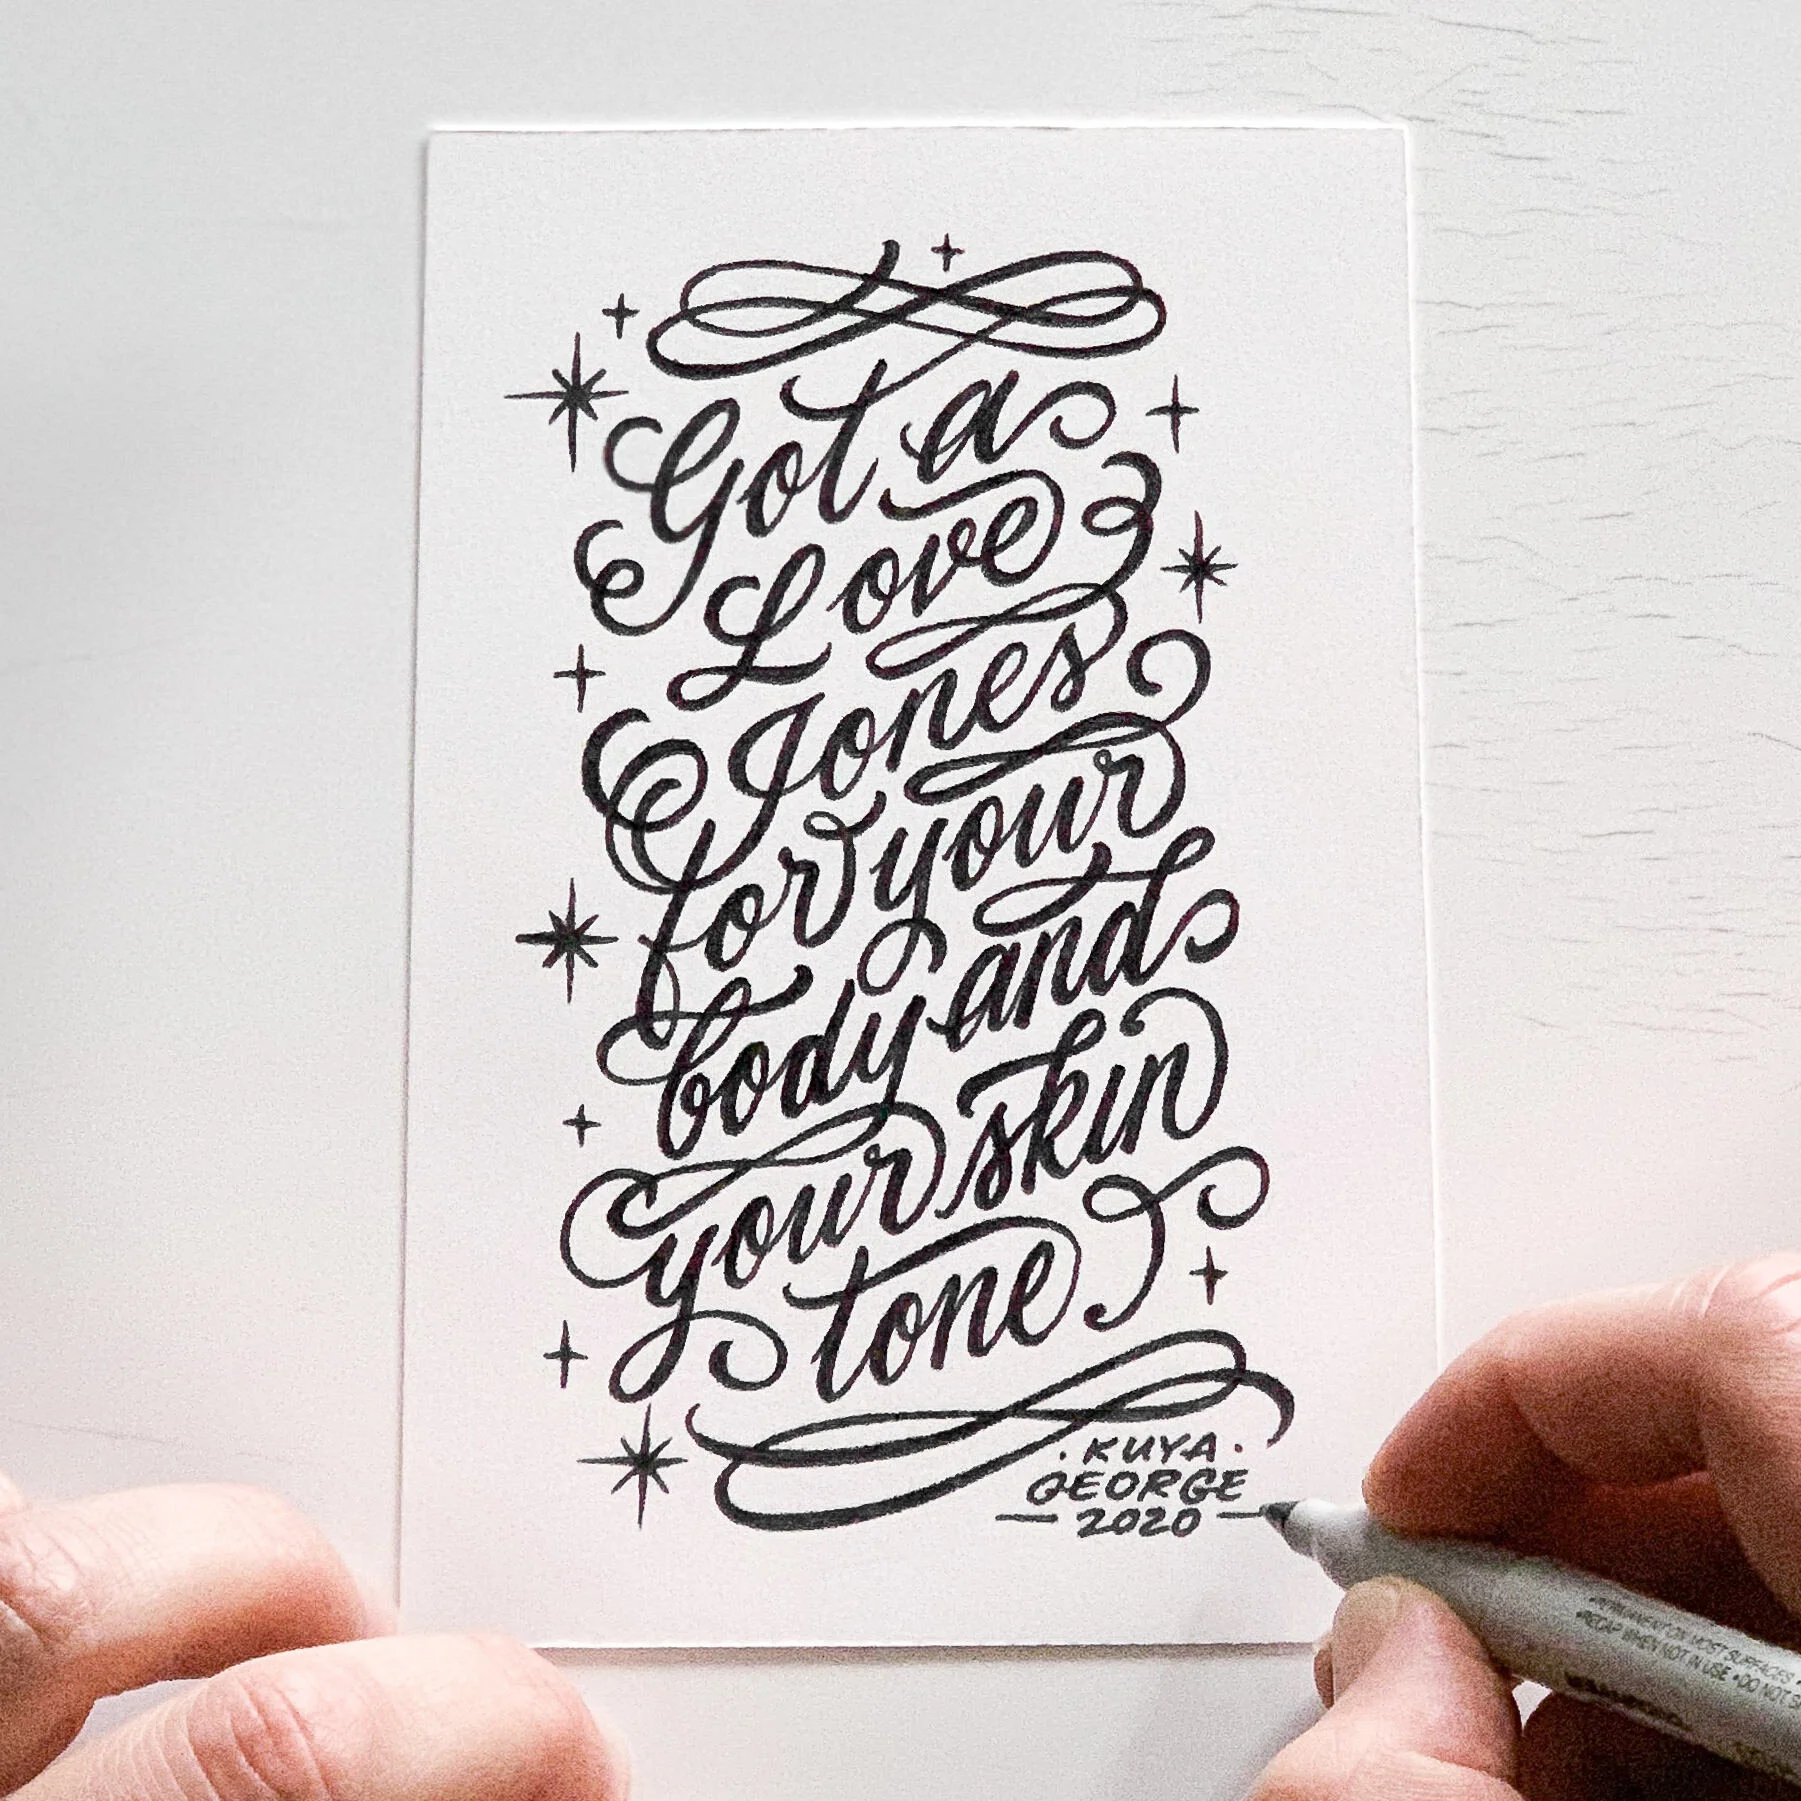 Got a
Love
Jones
for your
body and
your skin
tone
· KUYA ·
GEORGE
— 2020 —
•PERMANENT ON MOST SURFACES •
•RECAP WHEN NOT IN USE •DO NOT